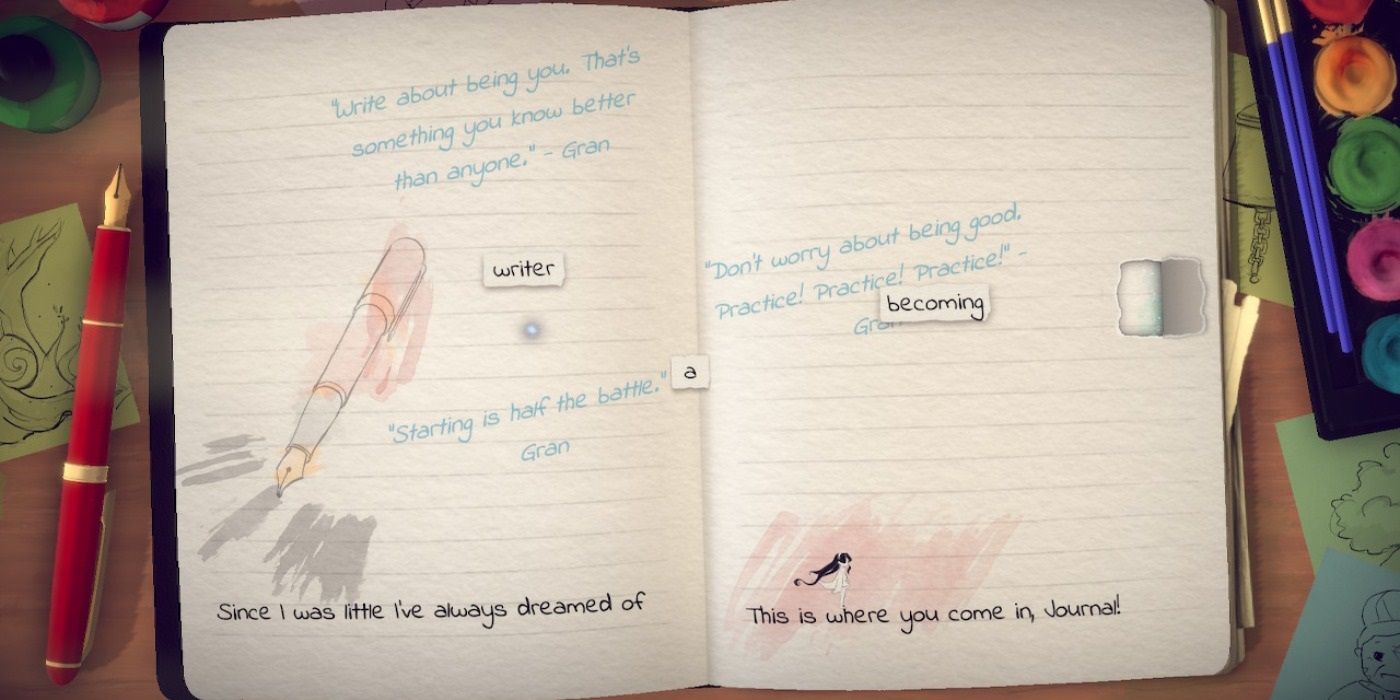 "Write about being you. That's
something you know better
than anyone." - Gran
writer
"Starting is half the battle."
Gran
Since I was little I've always dreamed of
a
"Don't worry about being good.
Practice! Practice! Practice!" -
Gran
becoming
This is where you come in, Journal!